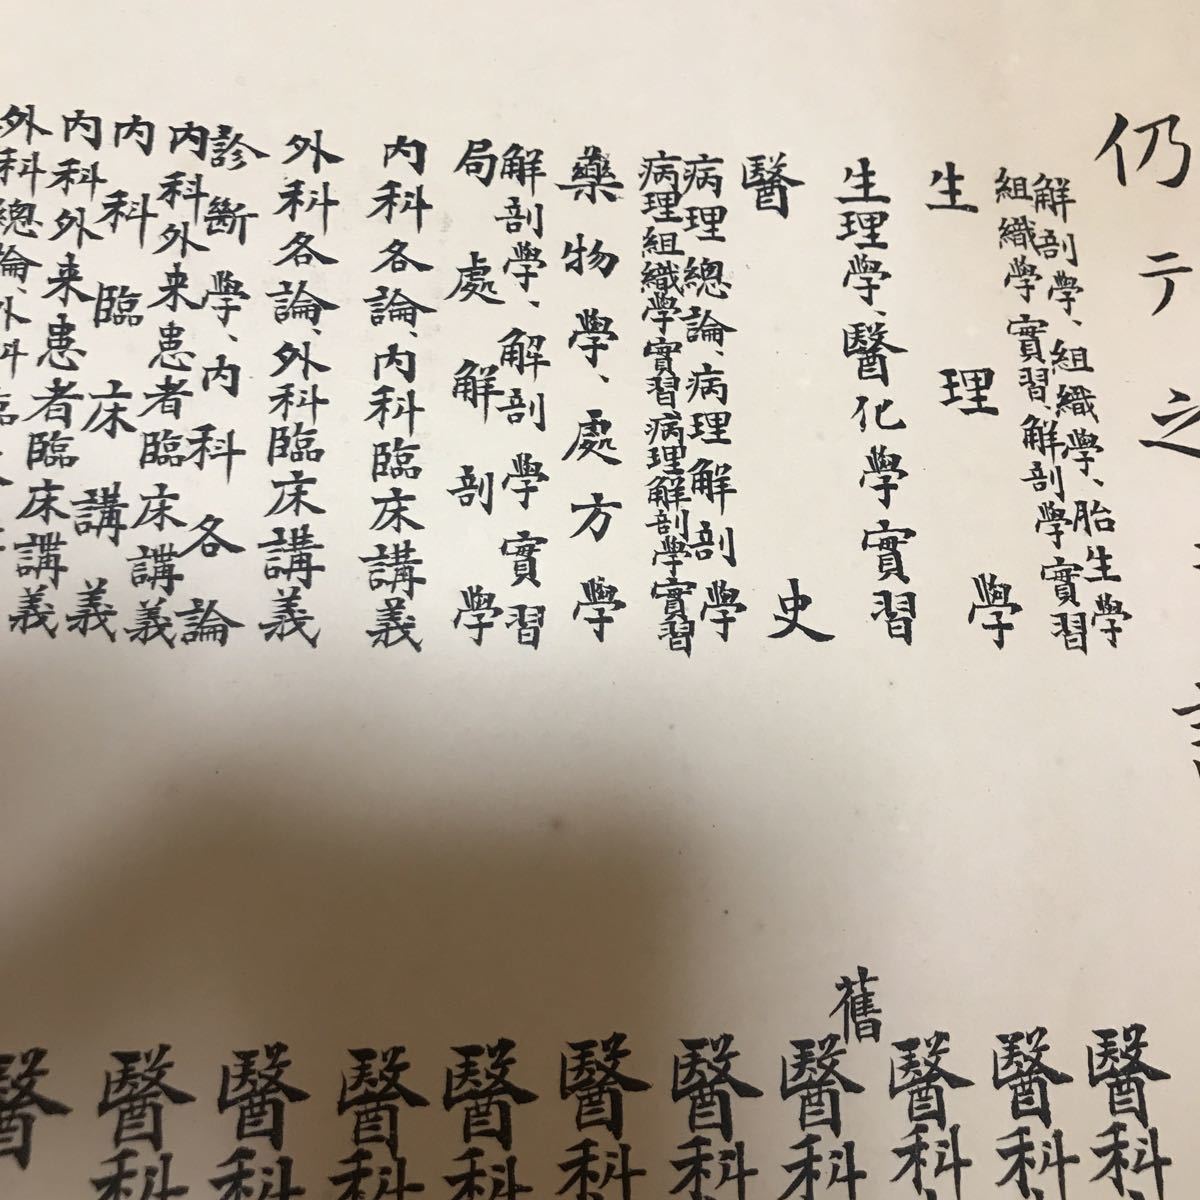 仍テ之
解剖學、組織學、胎生學
組織學實習、解剖學實習
生理學
生理學、醫化學實習
醫史
病理總論、病理解剖學
病理組織學實習、病理解剖學實習
藥物學、處方學
解剖學、解剖學實習
局處解剖學
内科各論、内科臨床講義
外科各論、外科臨床講義
診斷學、内科各論
内科外来患者臨床講義
内科臨床講義
内科外来患者臨床講義
外科總論、外科臨
醫科
醫科
醫科
舊醫科
醫科
醫科
醫科
醫科
醫科
醫科
醫